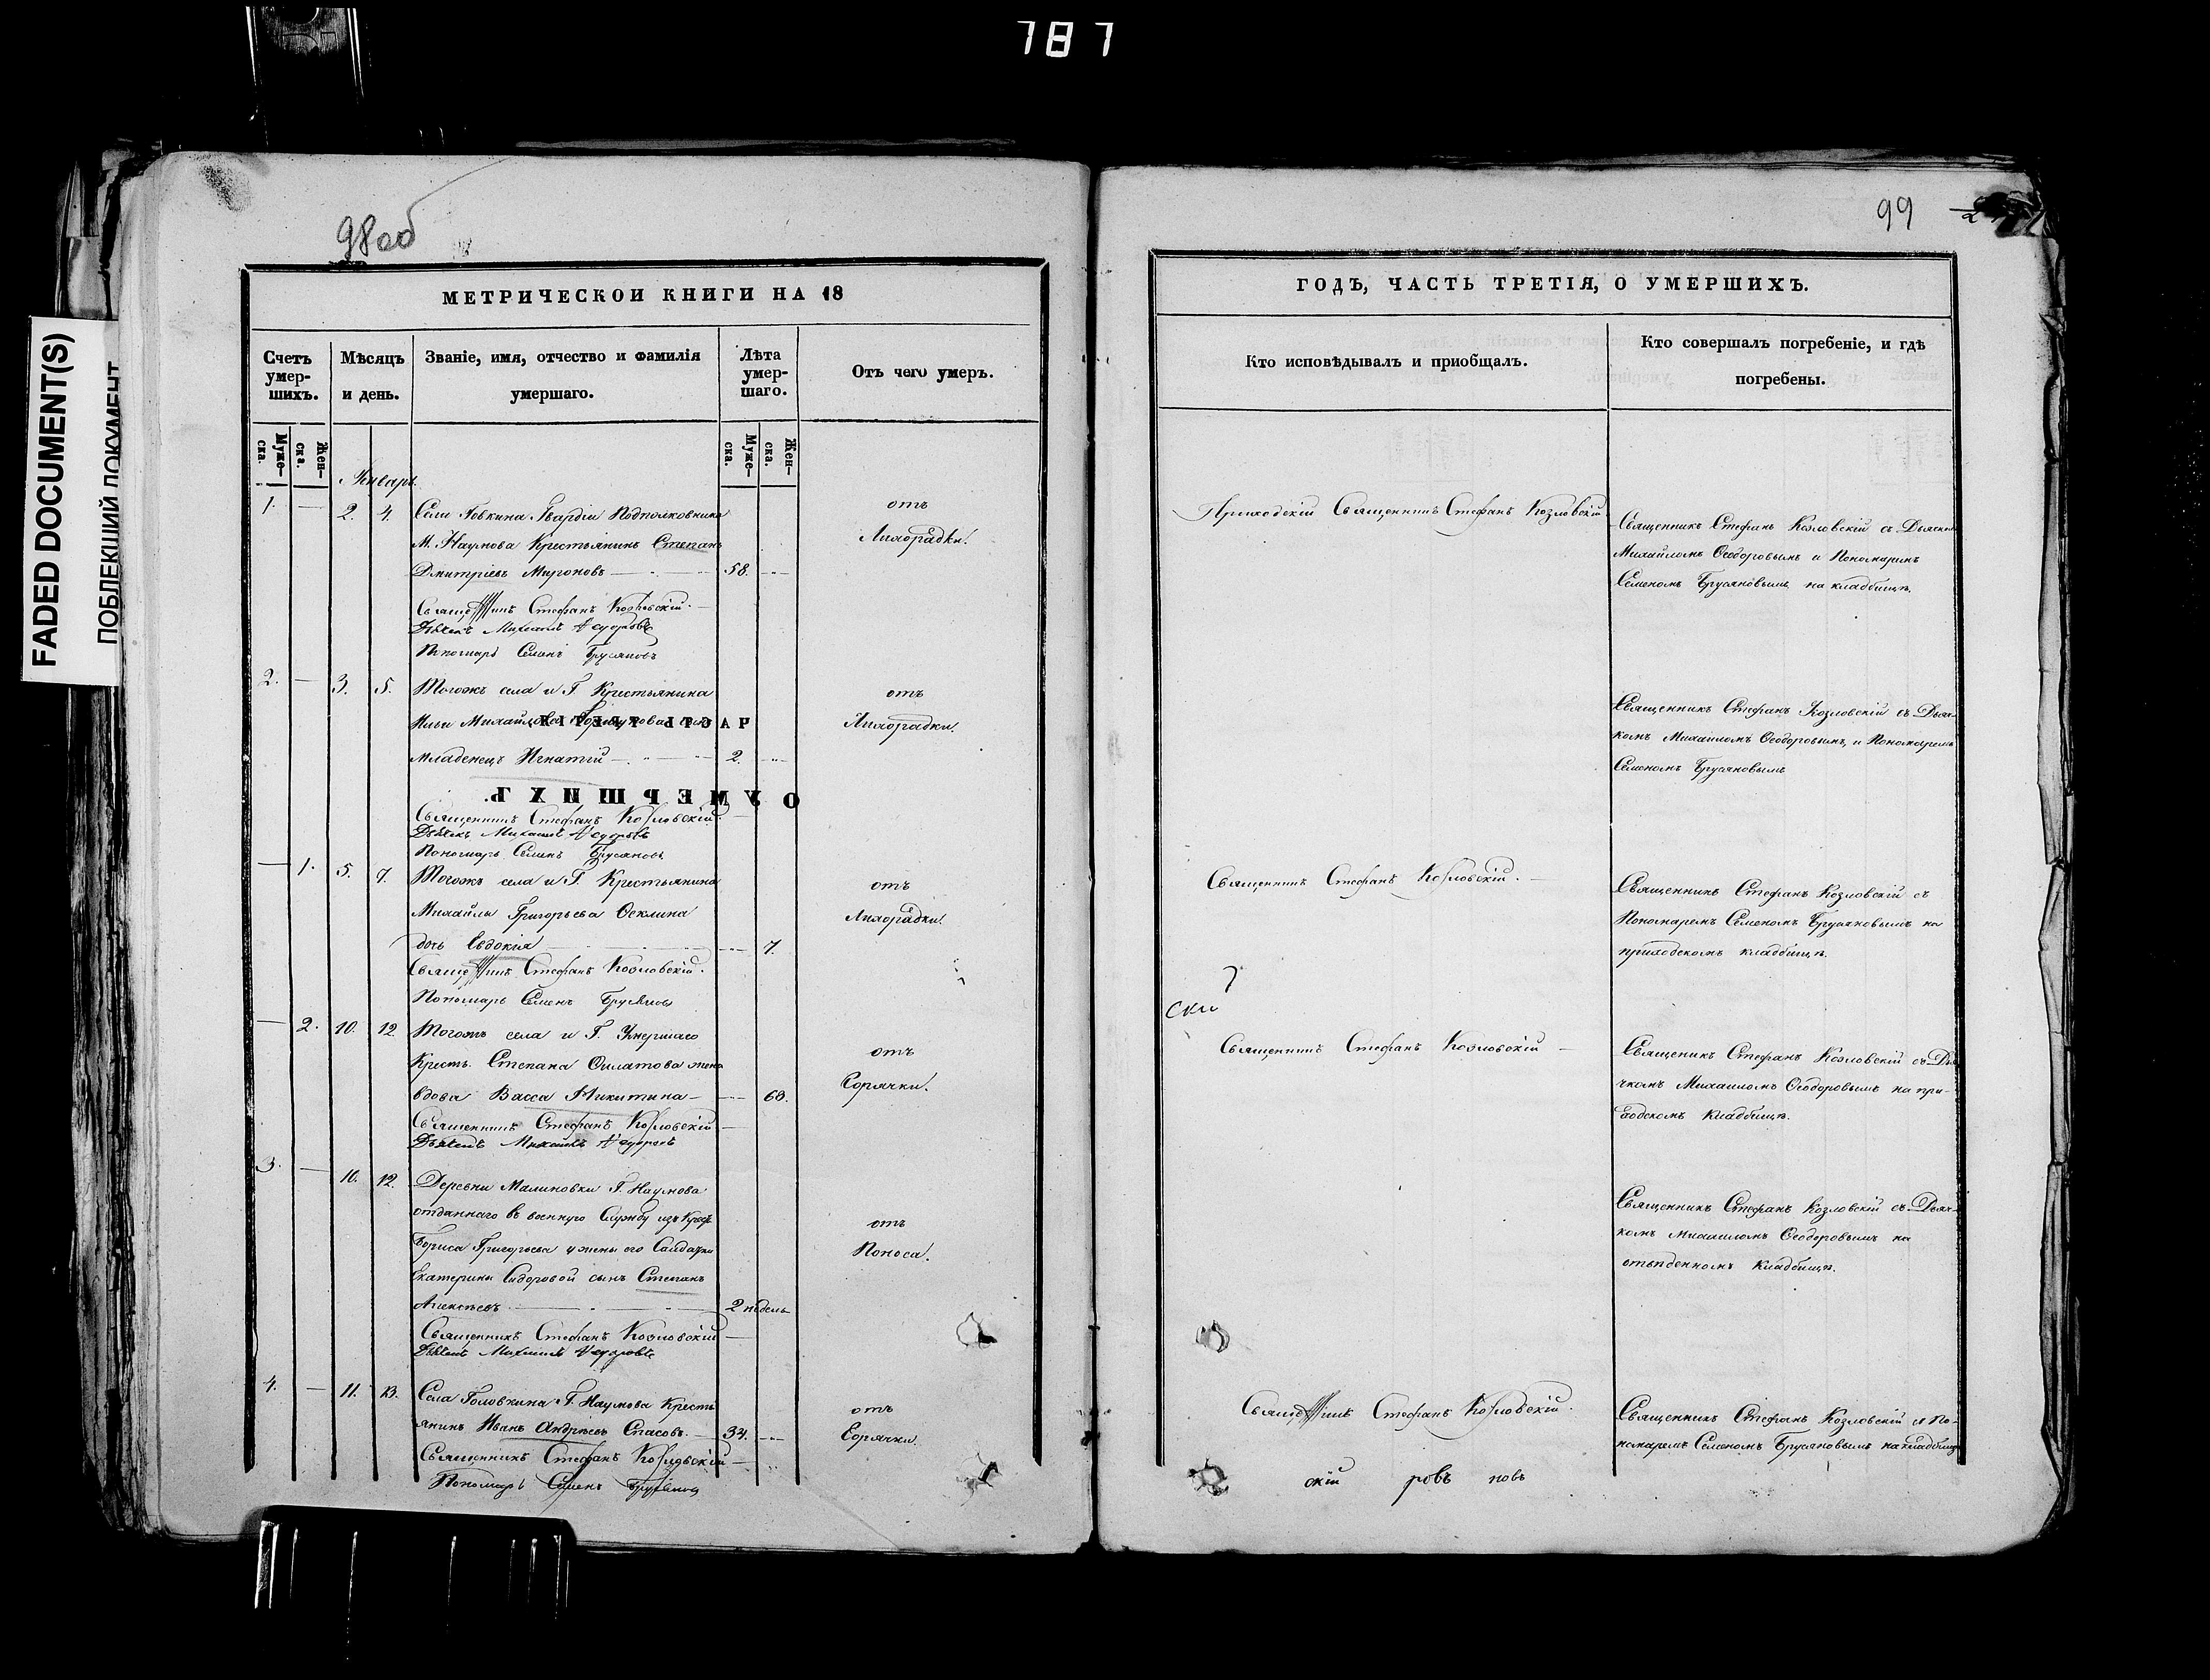 787
FADED DOCUMENT(S)
ПОБЛЕКШИЙ ДОКУМЕНТ
98об
МЕТРИЧЕСКОИ КНИГИ НА 18
Счетъ умер-шихъ.
Мѣсяцъ и день.
Званіе, имя, отчество и фамилія
умершаго.
Лѣта умер-шаго.
Отъ чего умеръ.
Муже-ска.
Жен-ска.
Муже-ска.
Жен-ска.
Январь.
1. — 2. 4. Села Гвардіи Подполковника
М. Наумова Крестьянинъ Степанъ
Дмитріевъ Мироновъ — 58.
отъ
Лихорадки.
Священникъ Стефанъ Козловскій.
Дьячекъ Михаилъ Ѳедоровъ
Пономарь Семенъ Брусяновъ
2. — 3. 5. Тогожъ села и Г. Крестьянина
Ильи Михайлова сынъ
ЧАСТЬ ТРЕТІЯ
младенецъ Игнатій — 2.
отъ
Лихорадки.
О УМЕРШИХЪ.
Священникъ Стефанъ Козловскій.
Дьячекъ Михаилъ Ѳедоровъ
Пономарь Семенъ Брусяновъ
— 1. 5. 7. Тогожъ села и Г. Крестьянина
Михайлы Григорьева Осклина
дочь Евдокія — 7.
отъ
Лихорадки.
Священникъ Стефанъ Козловскій.
Пономарь Семенъ Брусяновъ
— 2. 10. 12. Тогожъ села и Г. Умершаго
Крестъ. Степана Филатова жена
вдова Васса Никитина — 60.
отъ
Горячки.
Священникъ Стефанъ Козловскій
Дьячекъ Михаилъ Ѳедоровъ
3. — 10. 12. Деревни Малиновки Г. Наумова
отданнаго въ военную Службу изъ Крест
Бориса Григорьева у жены его Салдатки
Екатерины Сидоровой сынъ Степанъ
Алексѣевъ — 2 недель
отъ
Поноса.
Священникъ Стефанъ Козловскій
Дьячекъ Михаилъ Ѳедоровъ
4. — 11. 13. Села Головкина Г. Наумова Кресть
янинъ Иванъ Андрѣевъ Спасовъ. — 34.
отъ
Горячки.
Священникъ Стефанъ Козловскій
Пономарь Семенъ Брусяновъ
99
ГОДЪ, ЧАСТЬ ТРЕТІЯ, О УМЕРШИХЪ.
Кто исповѣдывалъ и приобщалъ.
Кто совершалъ погребеніе, и гдѣ
погребены.
Приходскій Священникъ Стефанъ Козловскій
Священникъ Стефанъ Козловскій съ Дьячкомъ
Михайломъ Ѳеодоровымъ и Пономаремъ
Семеномъ Брусяновымъ на кладбищѣ.
Священникъ Стефанъ Козловскій съ Дьяч-
комъ Михаиломъ Ѳеодоровымъ, и Пономаремъ
Семеномъ Брусяновымъ
Священникъ Стефанъ Козловскій.
Священникъ Стефанъ Козловскій съ
Пономаремъ Семеномъ Брусяновымъ на
приходскомъ кладбищѣ.
ски
Священникъ Стефанъ Козловскій
Священикъ Стефанъ Козловскій съ Дья
чкомъ Михаиломъ Ѳеодоровымъ на при-
ходскомъ Кладбищѣ.
Священникъ Стефанъ Козловскій съ Дьяч-
комъ Михаиломъ Ѳеодоровымъ на
кладбищѣ.
Священникъ Стефанъ Козловскій.
Священникъ Стефанъ Козловскій и По-
номаремъ Семеномъ Брусяновымъ на кладбищѣ
скій ровъ новъ